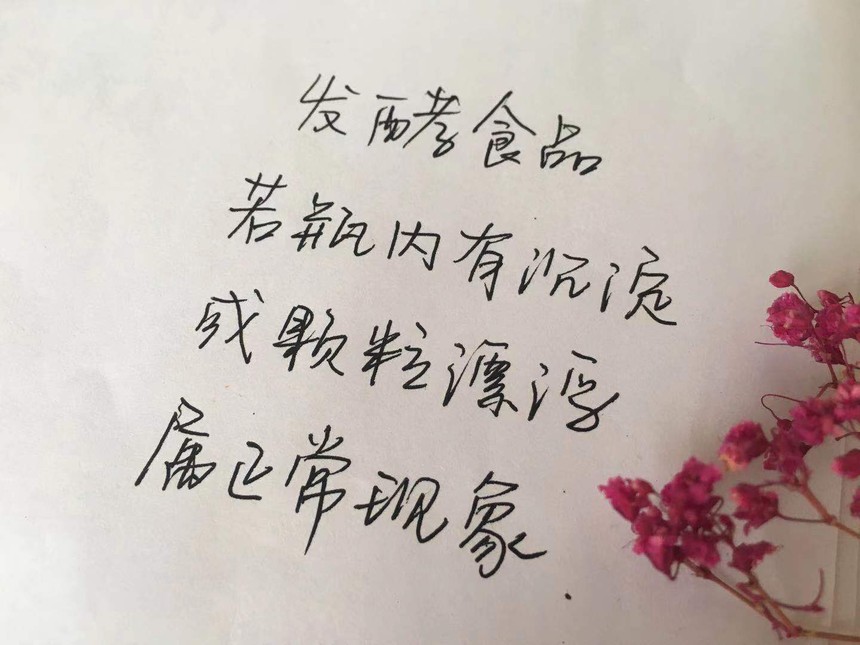 发酵食品
若瓶内有沉淀
或颗粒漂浮
属正常现象.